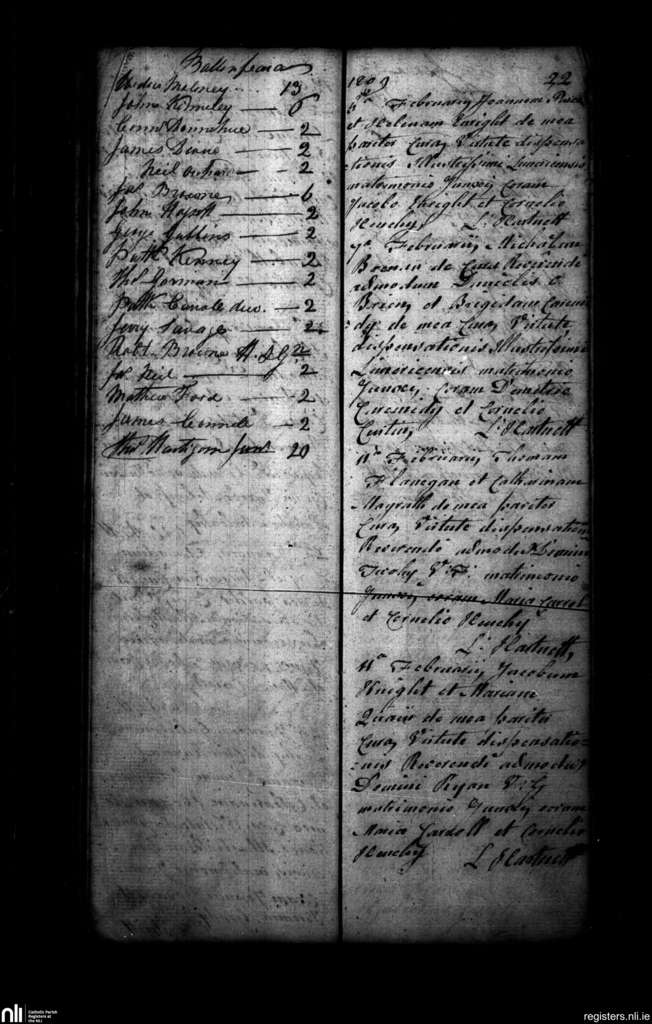 Ballinfeara
Meloney .. 13
John Kinnley — 6
Conn Donnahue — 2
James Doane — 2
Neil — 2
Jas Browne — 6
John — 2
George Gubbins — 2
Patt Kenney — 2
Thos Gorman — 2
Patth — 2
Jerry Savage — 2
Robt Browne 2
Jas Neil — 2
Mathew Ford — 2
James Connell — 2
Thos Hartigan Junr 20
1809 22
Februarii Joannem
et Helenam Enright de mea
pariter Cura Virtute dispensa
tionis Illustrissimi Limiricensis
matrimonio Junxi Coram
Jacobo Knight et Cornelio
Heuchy L. Hartnett
7a Februarii Michalem
Brenan de Cura Reverende
admodum Danielis O
Brien et Brigidam
de mea Cura Virtute
dispensationis Illustrissimi
Limiricensis matrimonio
Junxi Coram Demetrio
et Cornelio
Curtin L. Hartnett
11a Februarii Thomam
Flanegan et Catharinam
Magrath de mea pariter
Cura Virtute dispensation
Reverendi admodu Domini
Tuohy V. F. matrimonio
Junxi coram Maria Carrol
et Cornelio Heuchy
L. Hartnett
11a Februarii Jacobum
Knight et Mariam
de mea pariter
Cura Virtute dispensatio=
=nis Reverendi admodu
Domini Ryan V. G
matrimonio Junxi coram
Maria et Cornelio
Heuchy L Hartnett
nli Catholic Parish
Registers at
the NLI
registers.nli.ie